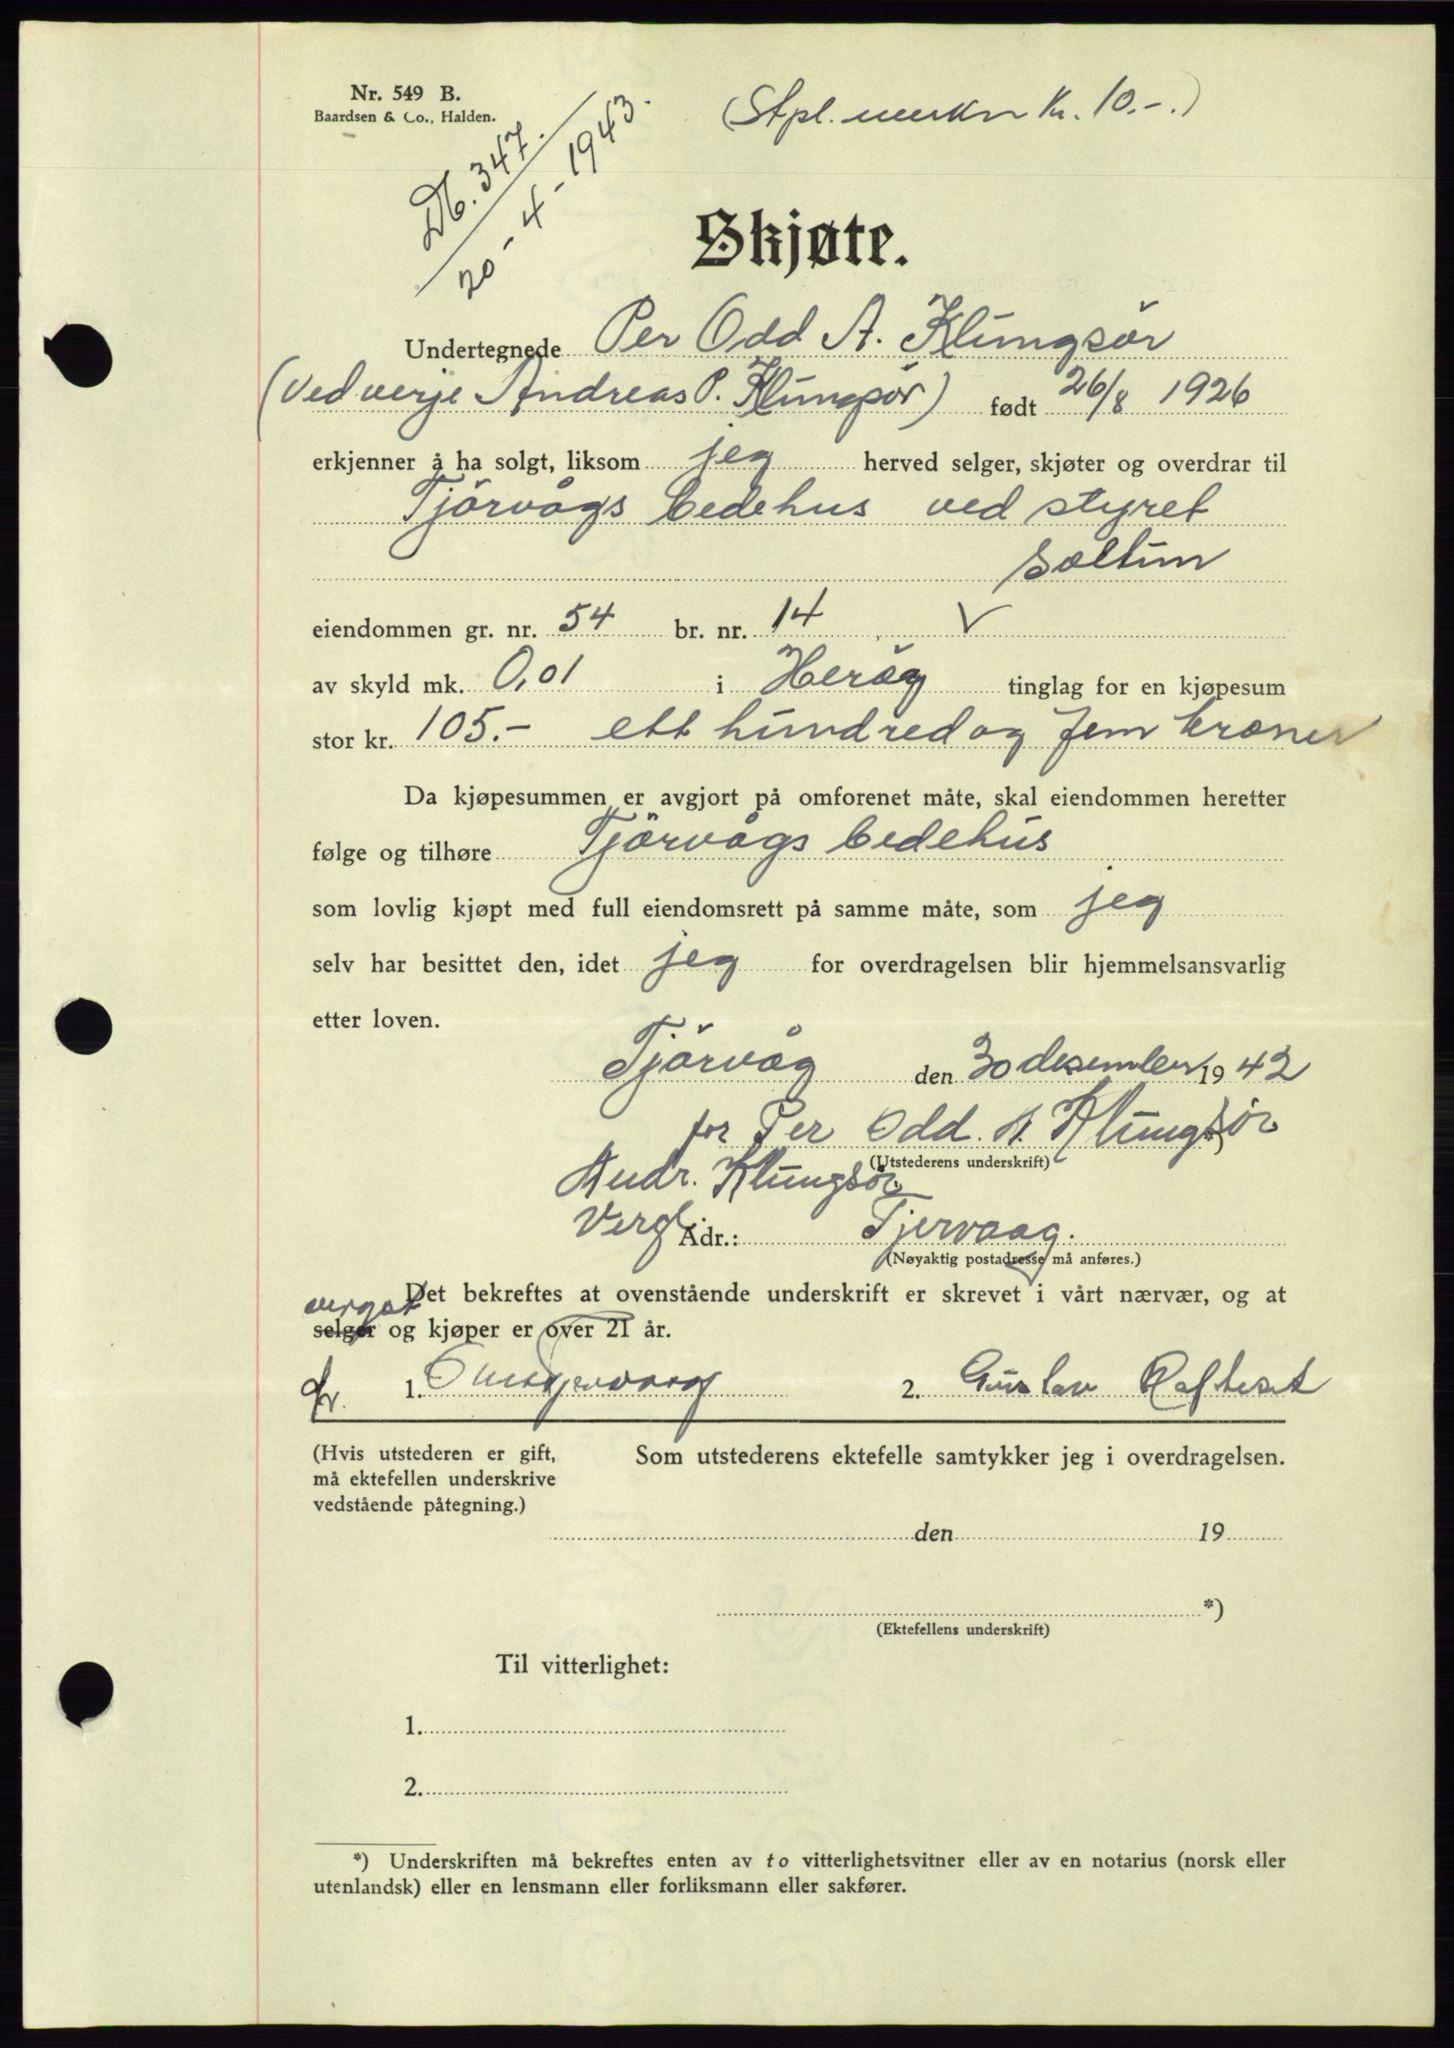 Nr. 549 B.
Baardsen & Co., Halden.
(Stpl. merker Kr. 10.-.)
Db. 347.
20-4-1943.
Skjøte.
Undertegnede Per Odd A. Klungsör
(ved verje Andreas P. Klungsör) født 26/8 1926
erkjenner å ha solgt, liksom jeg herved selger, skjøter og overdrar til
Tjörvågs bedehus ved styret
eiendommen gr. nr. 54 br. nr. 14, V
av skyld mk. 0,01 i Heröy tinglag for en kjøpesum
stor kr. 105.- ett hundred og fem kroner
Da kjøpesummen er avgjort på omforenet måte, skal eiendommen heretter
følge og tilhøre Tjörvågs bedehus
som lovlig kjøpt med full eiendomsrett på samme måte, som jeg
selv har besittet den, idet jeg for overdragelsen blir hjemmelsansvarlig
etter loven.
Tjörvåg den 30 desember 1942
for Per Odd A. Klungsör
(Utstederens underskrift)
Andr. Klungsör
Adr.: Tjervaag.
(Nøyaktig postadresse må anføres.)
Det bekreftes at ovenstående underskrift er skrevet i vårt nærvær, og at
selger og kjøper er over 21 år.
1.
2. Gustav Rafteset
(Hvis utstederen er gift,
må ektefellen underskrive
vedstående påtegning.)
Som utstederens ektefelle samtykker jeg i overdragelsen.
den 19
*)
(Ektefellens underskrift)
Til vitterlighet:
1.
2.
*) Underskriften må bekreftes enten av to vitterlighetsvitner eller av en notarius (norsk eller
utenlandsk) eller en lensmann eller forliksmann eller sakfører.